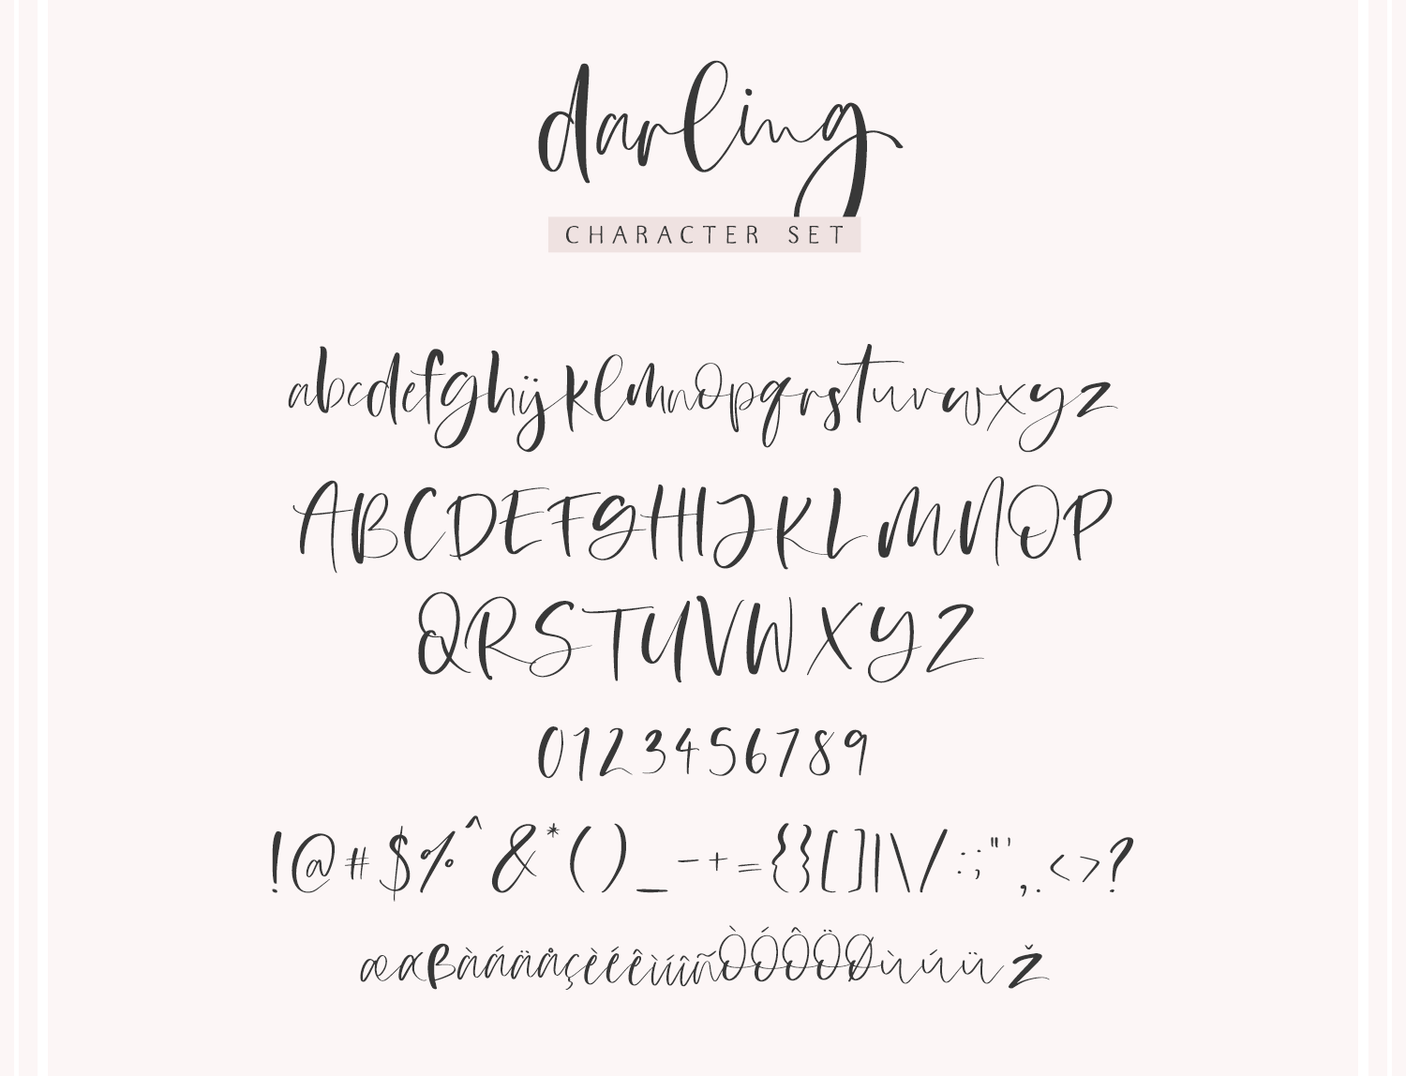 darling
CHARACTER SET
abcdefghijklmnopqrstuvwxyz
ABCDEFGHIJKLMNOP
QRSTUVWXYZ
0123456789
!@#$%^&*()_-+={}[]|\/:;"',.<>?
æαßàáäåçèéêìíîñÒÓÔÖØùúüž